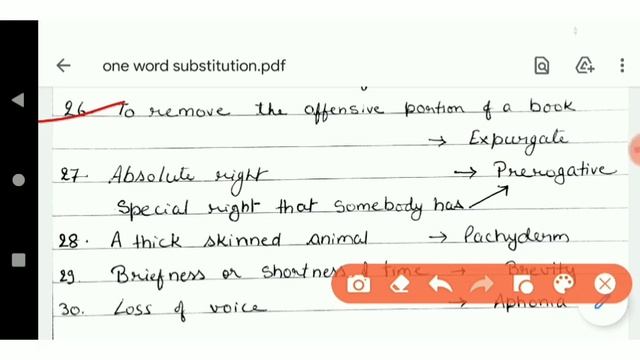 one word substitution.pdf
26. To remove the offensive portion of a book
→ Expurgate
27. Absolute right → Prerogative
Special right that somebody has
28. A thick skinned animal → Pachyderm
29 Briefness or shortness of time → Brevity
30. Loss of voice → Aphonia